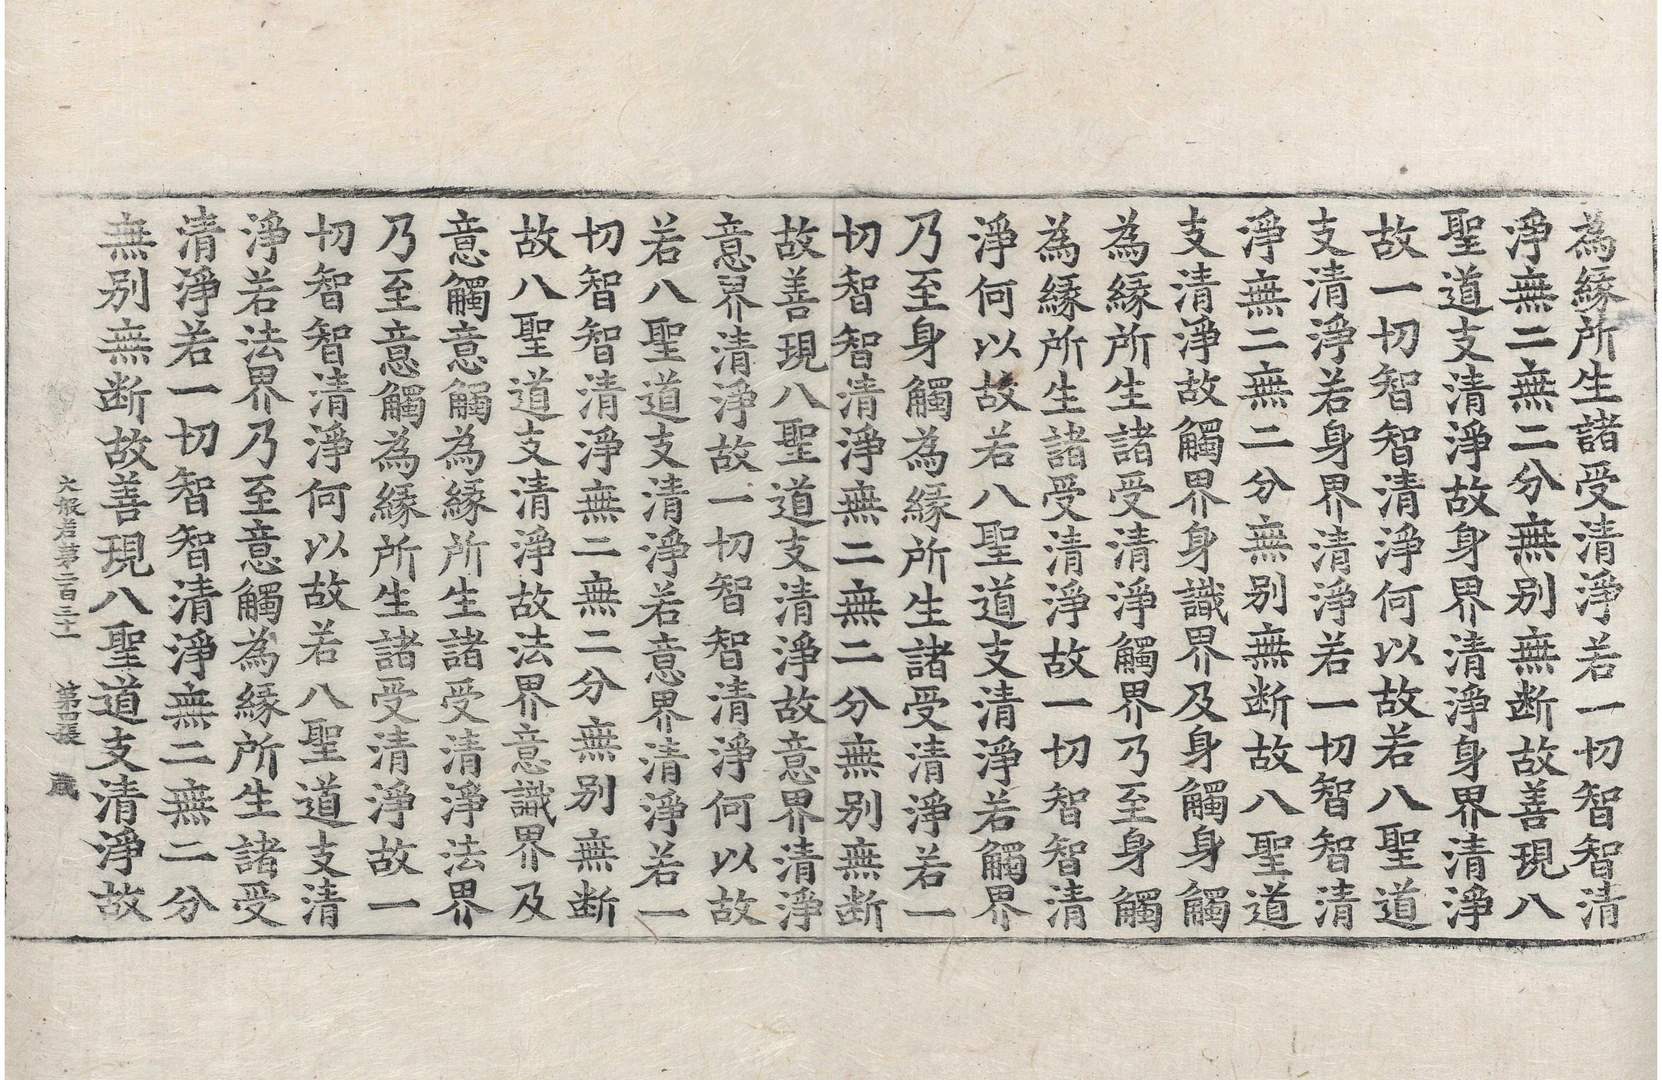 為緣所生諸受清淨若一切智智清
淨無二無二分無別無断故善現八
聖道支清淨故身界清淨身界清淨
故一切智智清淨何以故若八聖道
支清淨若身界清淨若一切智智清
淨無二無二分無別無断故八聖道
支清淨故觸界身識界及身觸身觸
為緣所生諸受清淨觸界乃至身觸
為緣所生諸受清淨故一切智智清
淨何以故若八聖道支清淨若觸界
乃至身觸為緣所生諸受清淨若一
切智智清淨無二無二分無別無断
故善現八聖道支清淨故意界清淨
意界清淨故一切智智清淨何以故
若八聖道支清淨若意界清淨若一
切智智清淨無二無二分無別無断
故八聖道支清淨故法界意識界及
意觸意觸為緣所生諸受清淨法界
乃至意觸為緣所生諸受清淨故一
切智智清淨何以故若八聖道支清
淨若法界乃至意觸為緣所生諸受
清淨若一切智智清淨無二無二分
大般若第二百三十一 第四張 蔵
無別無断故善現八聖道支清淨故